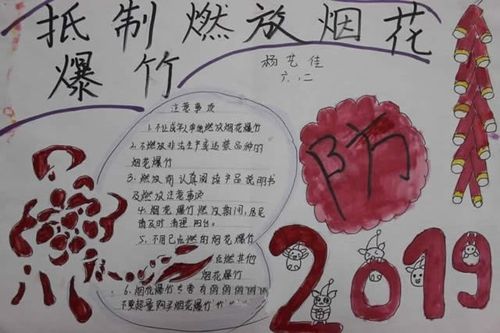 抵制燃放烟花
爆竹
杨艺佳
六.二
注意事项
1.不让成年人单独燃放烟花爆竹
2.不燃放非法生产或违禁品种的
烟花爆竹
3.燃放前认真阅读产品说明书
及燃放注意事项
4.烟花爆竹燃放期间,居民
请及时清理阳台。
5.不用已点燃的烟花爆竹
点燃其他
烟花爆竹
6.烟花爆竹
烟花爆竹
防
2019